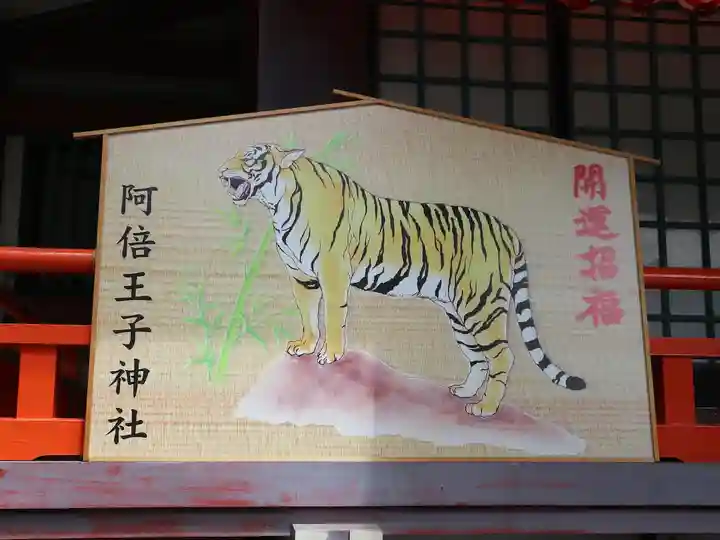 開運招福
阿倍王子神社